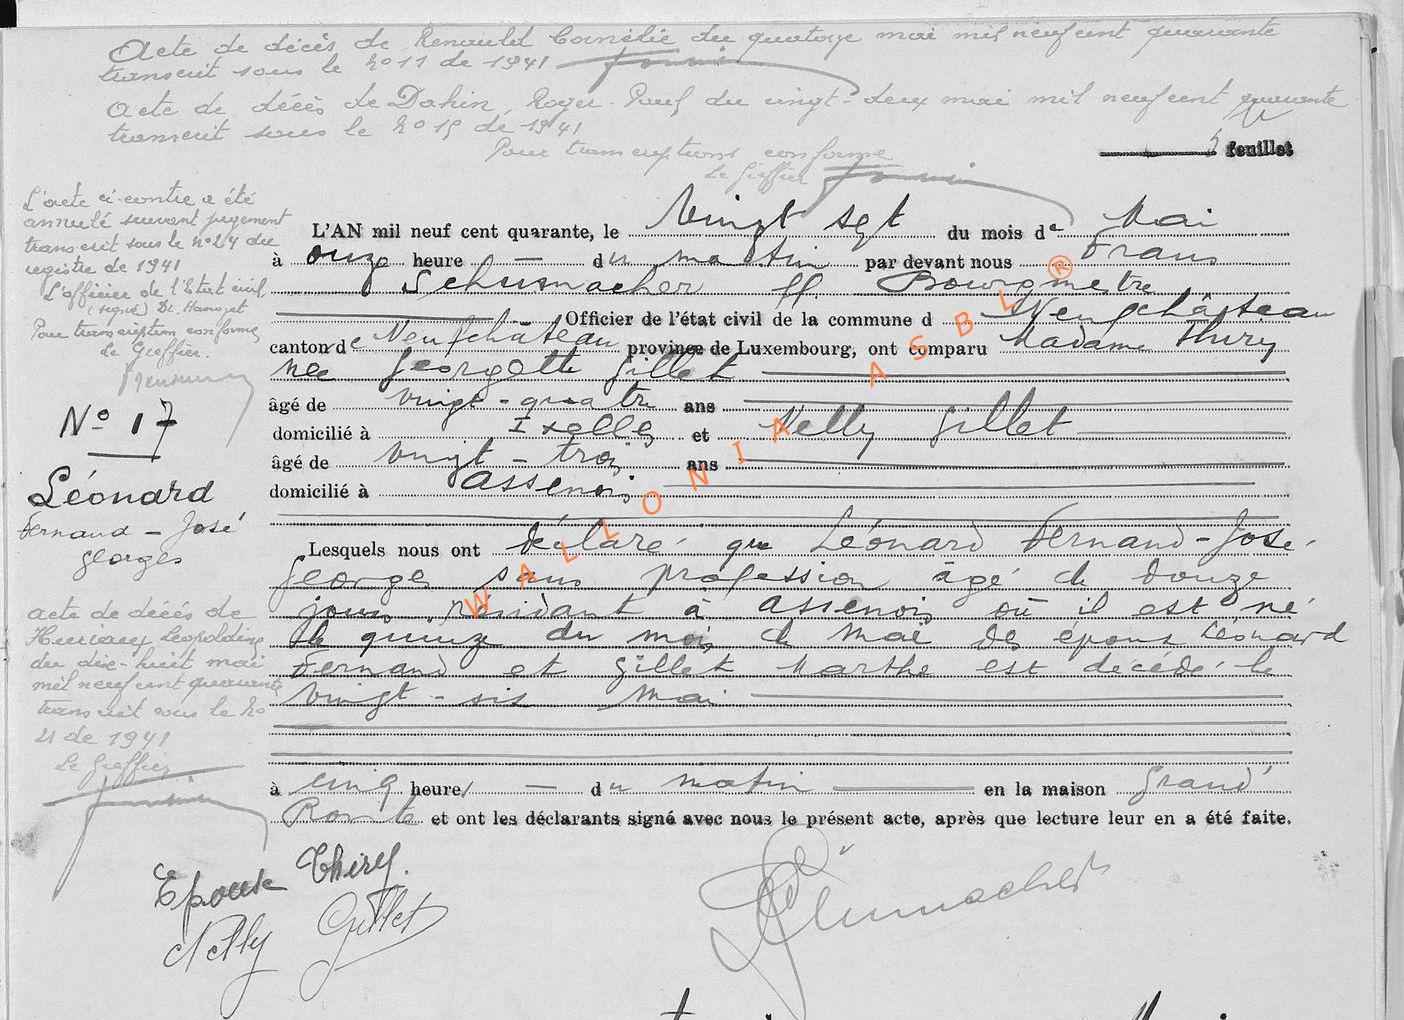 Acte de décès de Renauld Cornélie du quatorze mai mil neuf cent quarante
transcrit sous le No 11 de 1941
Acte de décès de Dahin, Roger-Paul du vingt-deux mai mil neuf cent quarante
transcrit sous le No 15 de 1941
Pour transcriptions conforme
Le Greffier
5 feuillet
L'acte ci-contre a été
annulé suivant jugement
transcrit sous le No 24 du
registre de 1941
L'officier de l'Etat civil
(signé) Dr.
Pour transcription conforme
Le Greffier.
No 17
Léonard
Fernand - José
Georges
Acte de décès de
Léopoldine
du dix-huit mai
mil neuf cent quarante
transcrit sous le No
21 de 1941
Le Greffier
L'AN mil neuf cent quarante, le Vingt sept du mois de Mai
à onze heure — du matin par devant nous Frans
Schumacher ff. Bourgmestre
Officier de l'état civil de la commune d Neufchâteau
canton de Neufchâteau province de Luxembourg, ont comparu Madame Thiry
née Georgette Gillet
âgé de vingt-quatre ans
domicilié à Ixelles et Nelly Gillet
âgé de vingt-trois ans
domicilié à Assenois
Lesquels nous ont déclaré que Léonard Fernand-José-
Georges sans profession âgé de douze
jours résidant à Assenois où il est né
le quinze du mois de Mai des époux Léonard
Fernand et Gillet Marthe est décédé le
vingt-six Mai
à cinq heure — du matin en la maison Grand'
Route et ont les déclarants signé avec nous le présent acte, après que lecture leur en a été faite.
Epouse Thiry.
Nelly Gillet
Schumacher
WALLONIA ASBL ®